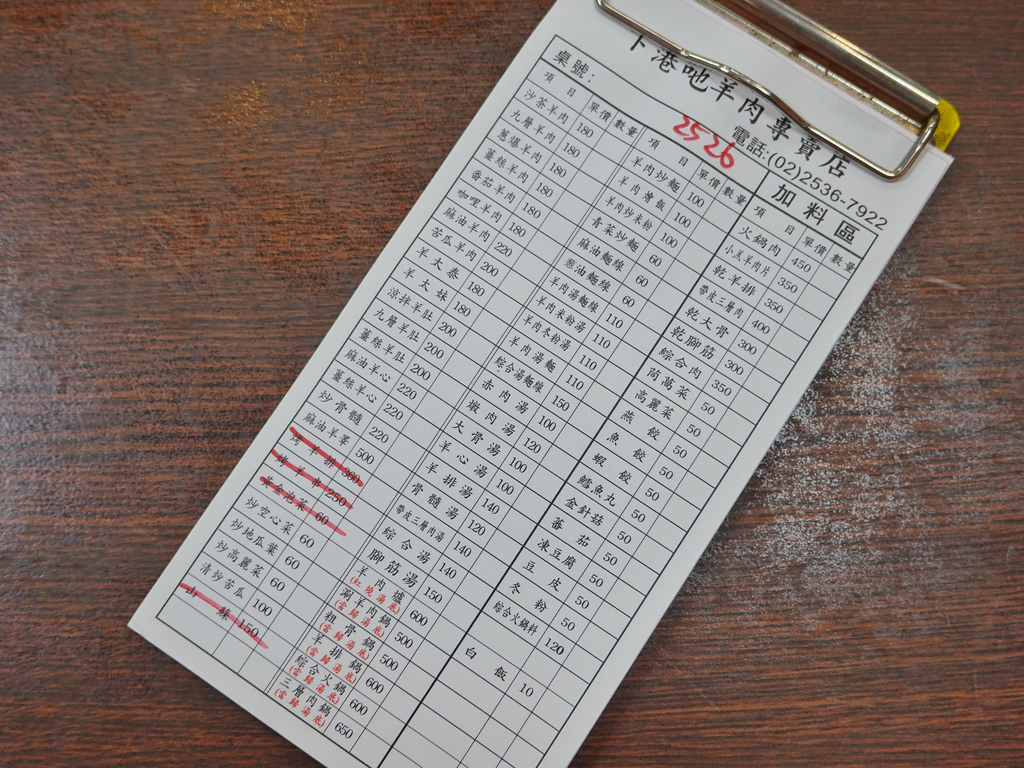 下港吔羊肉專賣店
電話:(02)2536-7922
桌號:
2526
項 目 單價 數量
沙茶羊肉 180
九層羊肉 180
蔥爆羊肉 180
薑絲羊肉 180
番茄羊肉 180
咖哩羊肉 180
麻油羊肉 220
苦瓜羊肉 200
羊太泰 180
羊太妹 180
涼拌羊肚 200
九層羊肚 200
薑絲羊肚 200
麻油羊心 220
薑絲羊心 220
炒骨髓 220
麻油羊睪 500
烤羊排 300
烤羊串 250
黃金泡菜 60
炒空心菜 60
炒地瓜葉 60
炒高麗菜 60
清炒苦瓜 100
山蘇 150
項 目 單價 數量
羊肉炒麵 100
羊肉燴飯 100
羊肉炒米粉 100
青菜炒麵 60
麻油麵線 60
蔥油麵線 60
羊肉湯麵線 110
羊肉米粉湯 110
羊肉冬粉湯 110
羊肉湯麵 110
綜合湯麵線 150
赤肉湯 100
燉肉湯 120
大骨湯 100
羊心湯 100
羊排湯 140
骨髓湯 120
帶皮三層肉湯 140
綜合湯 140
腳筋湯 150
羊肉爐 600
(紅燒湯底)
涮羊肉鍋 500
(當歸湯底)
粗骨鍋 500
(當歸湯底)
羊排鍋 600
(當歸湯底)
綜合火鍋 600
(當歸湯底)
三層肉鍋 650
(當歸湯底)
加料區
項 目 單價 數量
火鍋肉 450
小羔羊肉片 350
乾羊排 350
帶皮三層肉 400
乾大骨 300
乾腳筋 300
綜合肉 350
茼萵菜 50
高麗菜 50
燕餃 50
魚餃 50
蝦餃 50
鱈魚丸 50
金針菇 50
蕃茄 50
凍豆腐 50
豆皮 50
冬粉 50
綜合火鍋料 120
白飯 10